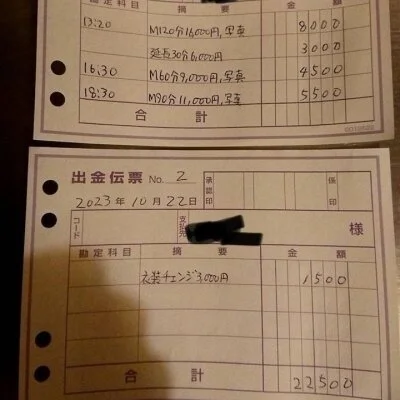 勘定科目 摘要 金額
13:20 M120分16,000円,写真 8000
延長30分6,000円 3000
16:30 M60分9,000円,写真 4500
18:30 M90分11,000円,写真 5500
合計
出金伝票 No. 2 承認印 係印
2023年10月22日
コード 支払先 様
勘定科目 摘要 金額
衣装チェンジ3,000円 1500
合計 22500